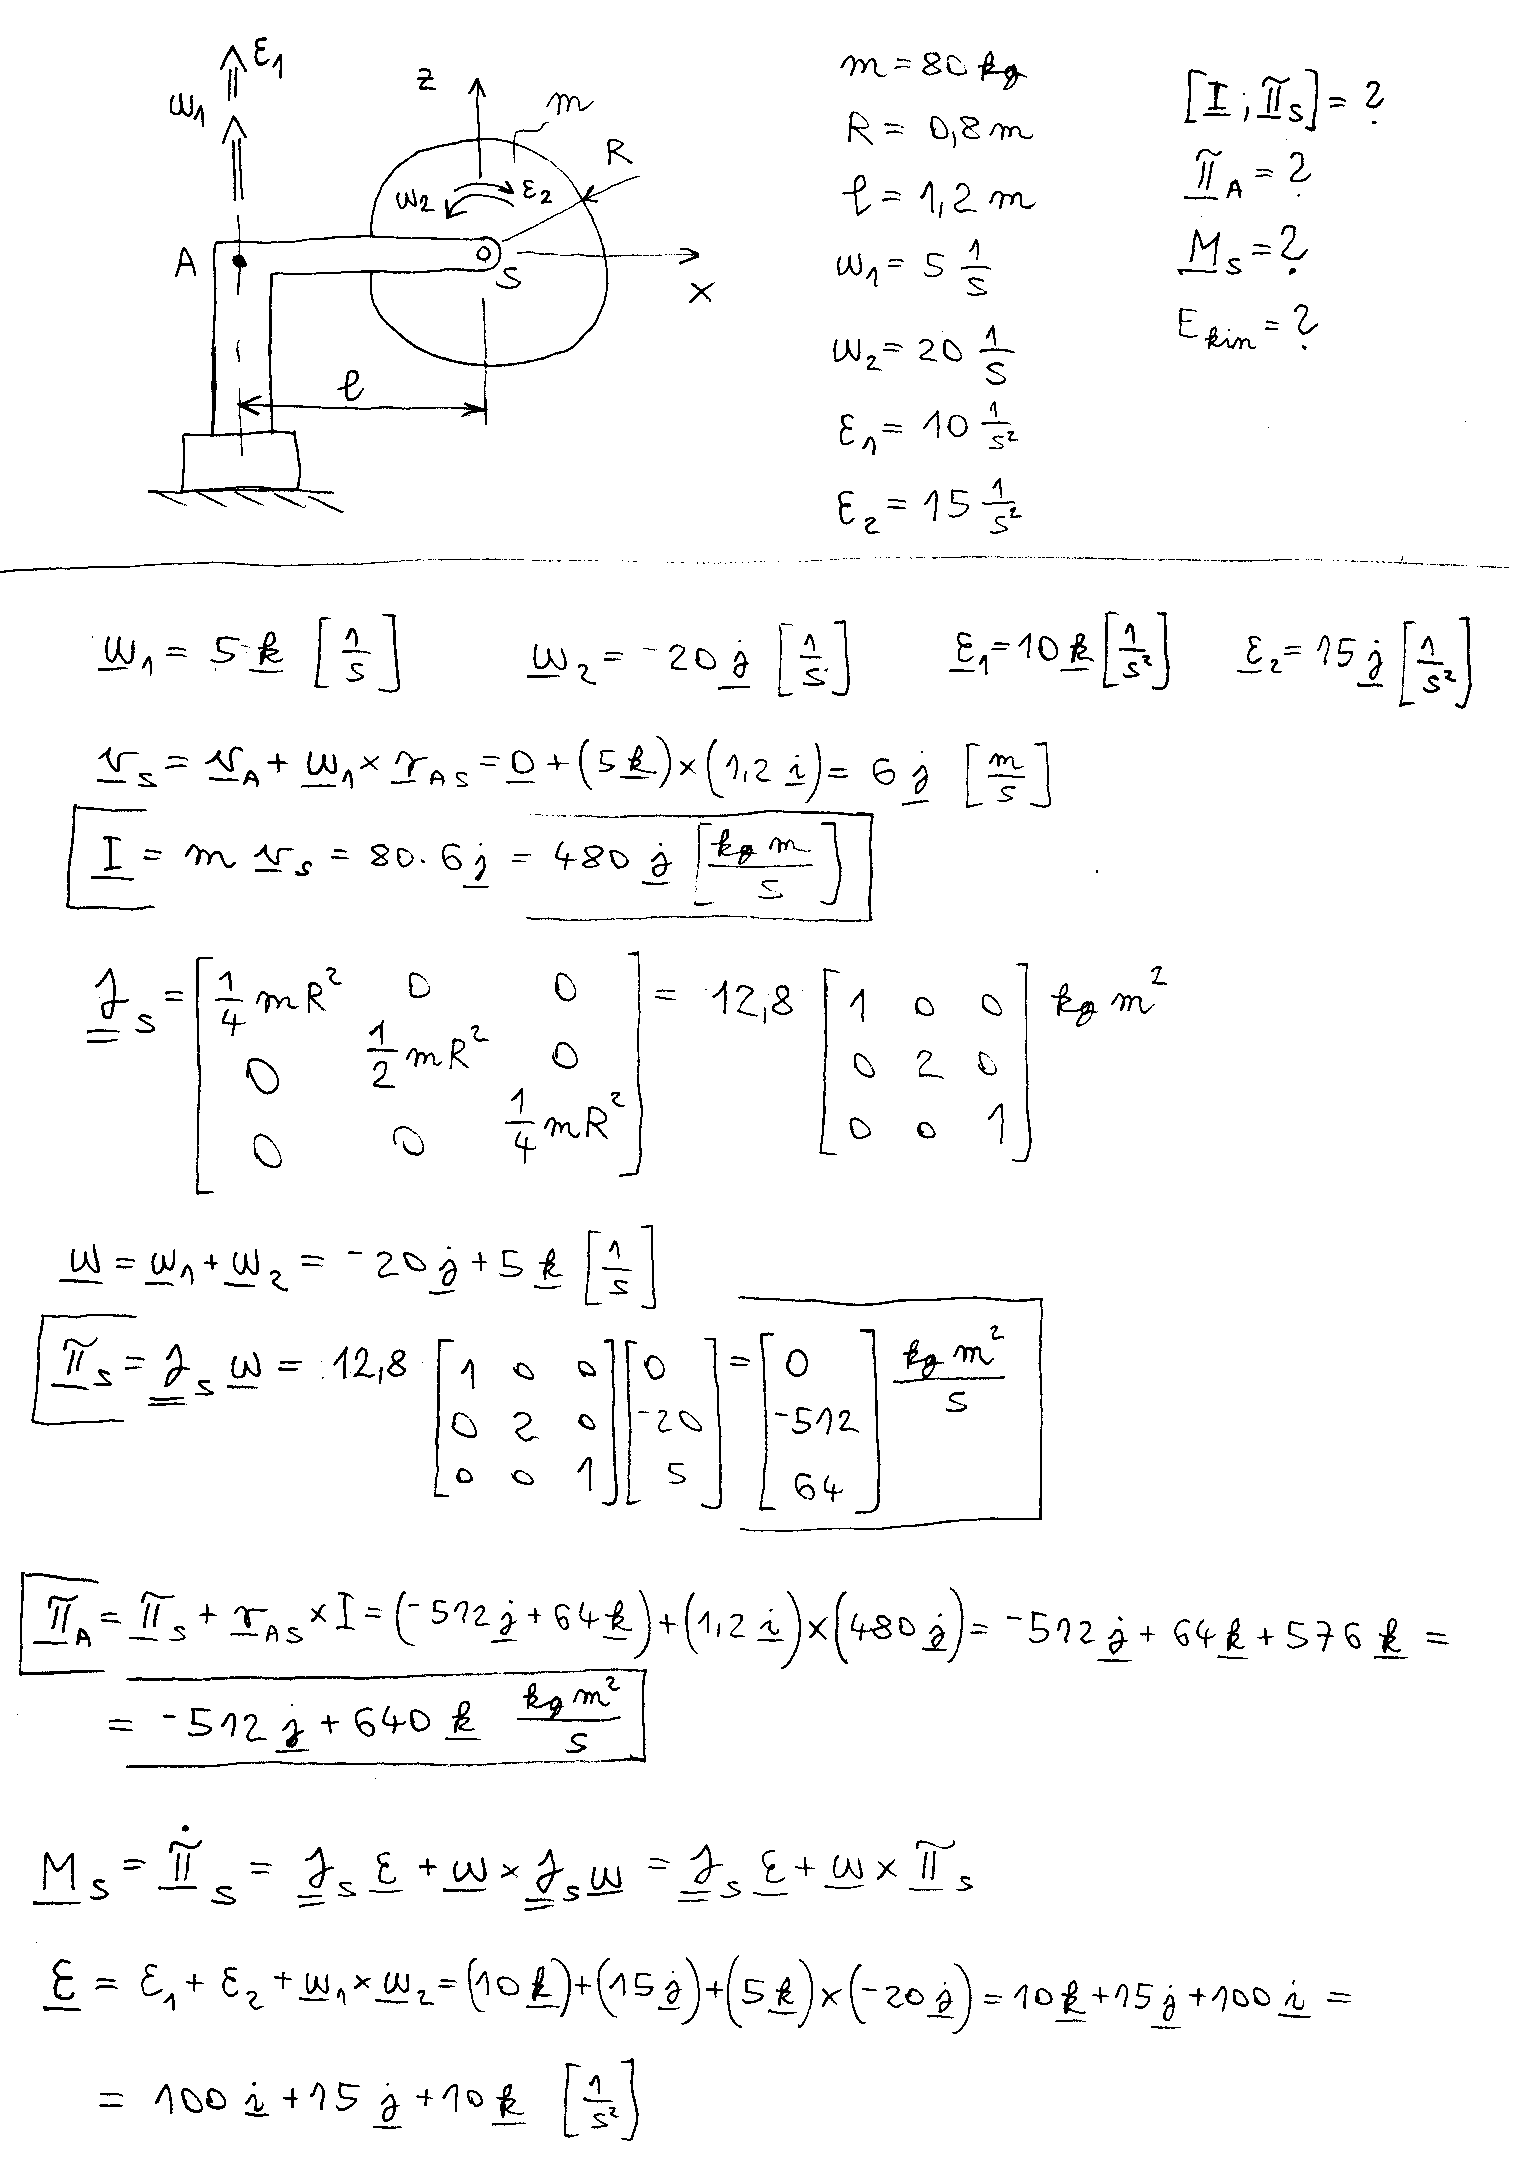 ε₁
ω₁
z
m
R
ω₂ ε₂
A
S
x
l
m = 80 kg
R = 0,8 m
l = 1,2 m
ω₁ = 5 1/s
ω₂ = 20 1/s
ε₁ = 10 1/s²
ε₂ = 15 1/s²
[I; π_S] = ?
π_A = ?
M_S = ?
E_kin = ?
ω₁ = 5 k [1/s] ω₂ = -20 j [1/s] ε₁ = 10 k [1/s²] ε₂ = 15 j [1/s²]
v_S = v_A + ω₁ × r_AS = 0 + (5 k) × (1,2 i) = 6 j [m/s]
I = m v_S = 80 · 6 j = 480 j [kg m/s]
J_S = [1/4 mR² 0 0; 0 1/2 mR² 0; 0 0 1/4 mR²] = 12,8 [1 0 0; 0 2 0; 0 0 1] kg m²
ω = ω₁ + ω₂ = -20 j + 5 k [1/s]
π_S = J_S ω = 12,8 [1 0 0; 0 2 0; 0 0 1] [0; -20; 5] = [0; -512; 64] kg m²/s
π_A = π_S + r_AS × I = (-512 j + 64 k) + (1,2 i) × (480 j) = -512 j + 64 k + 576 k =
= -512 j + 640 k kg m²/s
M_S = π̇_S = J_S ε + ω × J_S ω = J_S ε + ω × π_S
ε = ε₁ + ε₂ + ω₁ × ω₂ = (10 k) + (15 j) + (5 k) × (-20 j) = 10 k + 15 j + 100 i =
= 100 i + 15 j + 10 k [1/s²]